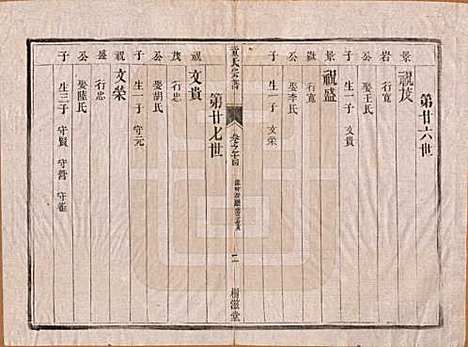 第廿六世
景 祝茂
岩 行寬
公 娶王氏
子 生一子 文貴
景 祝盛
嶽 行寬
公 娶李氏
子 生一子 文榮
董氏宗譜
卷之
二
樹滋堂
第廿七世
祝 文貴
茂 行忠
公 娶胡氏
子 生一子 守元
祝 文榮
盛 行忠
公 娶陸氏
子 生三子 守賢 守